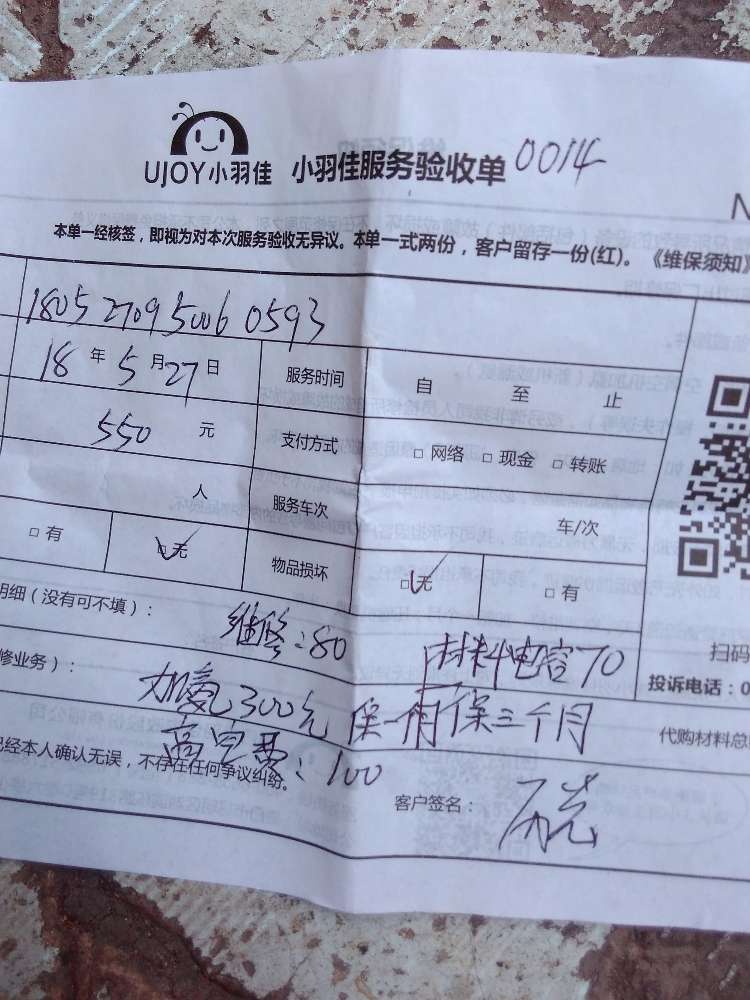 UJOY小羽佳 小羽佳服务验收单 0014
N
本单一经核签，即视为对本次服务验收无异议。本单一式两份，客户留存一份(红)。《维保须知》
1805 2709 5006 0593
18 年 5 月 27 日 服务时间 自 至 止
550 元 支付方式 □ 网络 □ 现金 □ 转账
人 服务车次 车/次
□ 有 □ 无 物品损坏 □ 无 □ 有
明细（没有可不填）： 维修：80 材料电容70
扫码
修业务）： 投诉电话：0
加氟300元 保一用保三个月
代购材料总
高空费：100
已经本人确认无误，不存在任何争议纠纷。
客户签名：